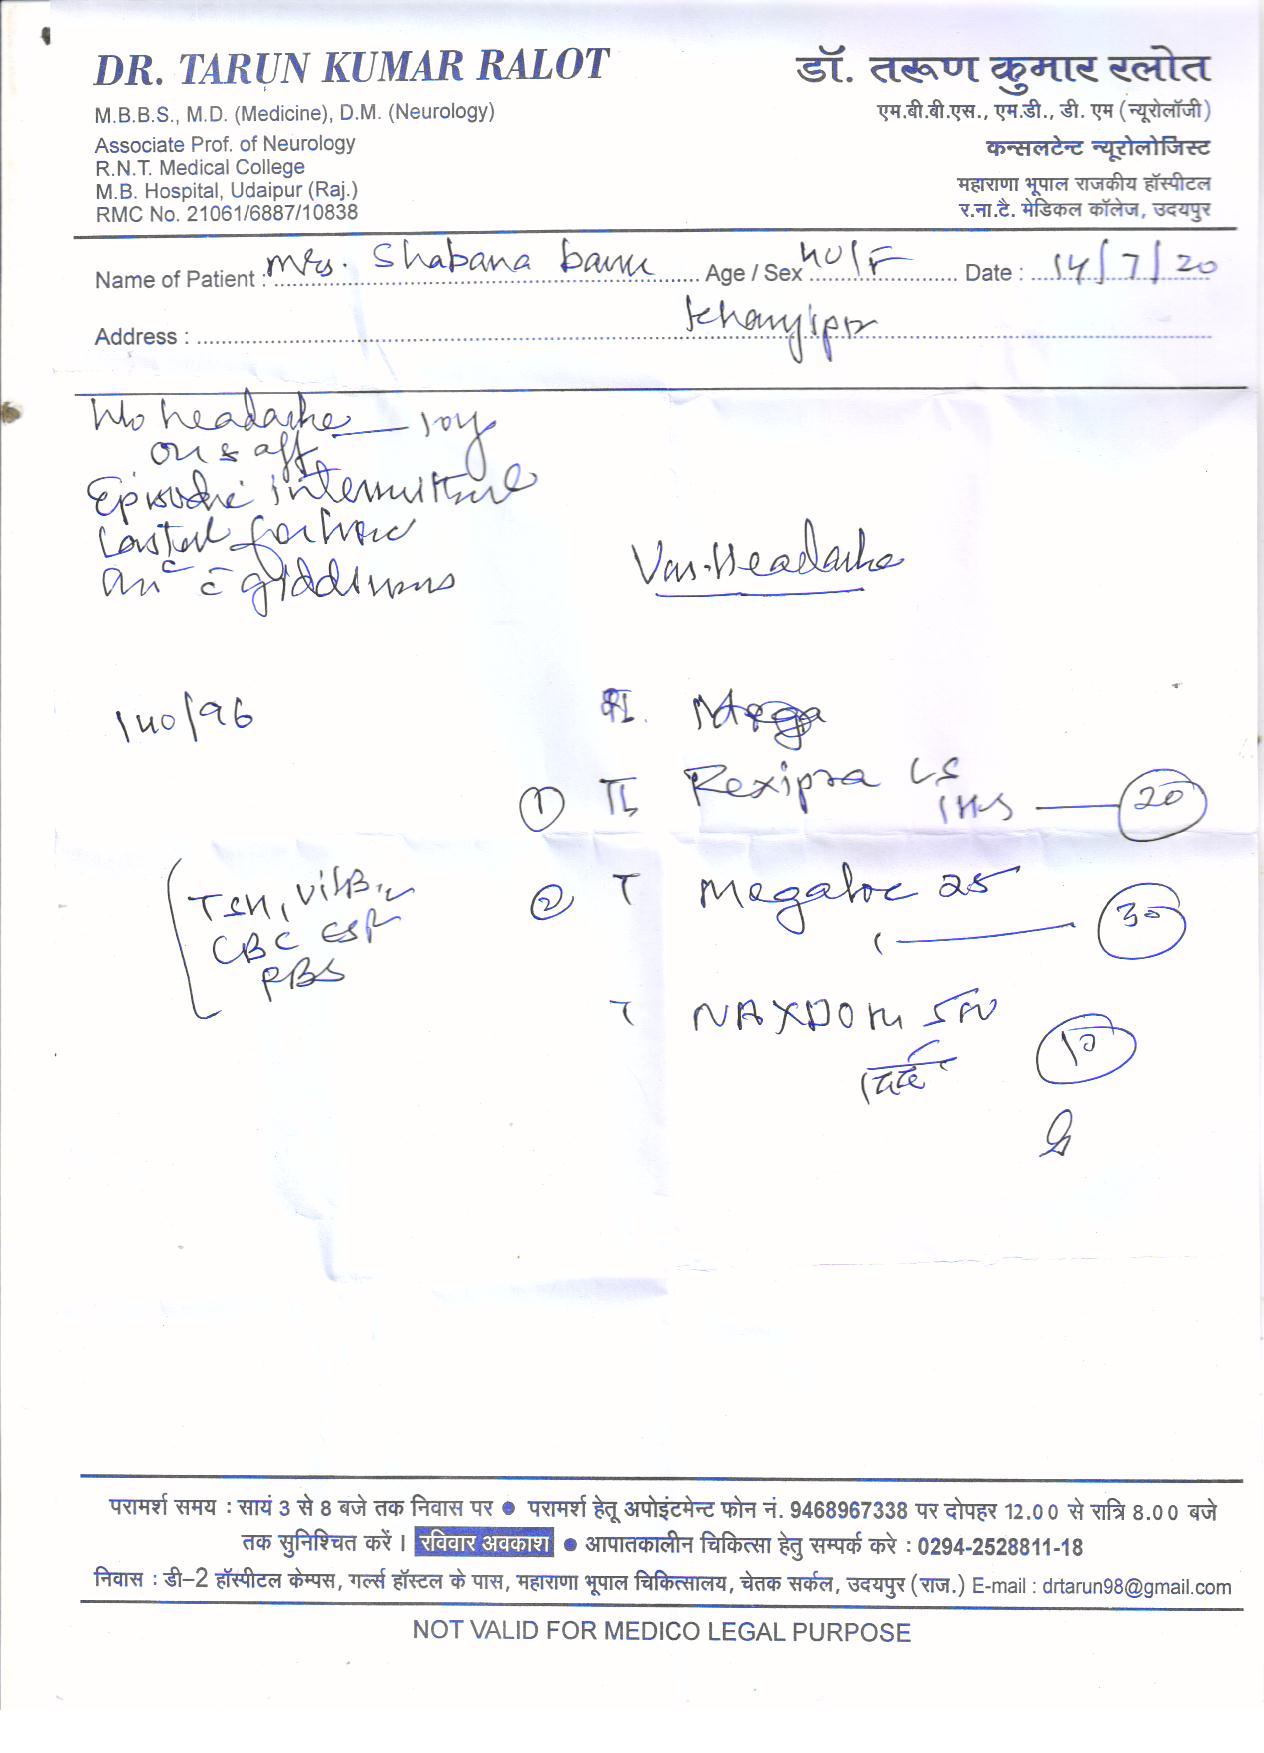 DR. TARUN KUMAR RALOT
M.B.B.S., M.D. (Medicine), D.M. (Neurology)
Associate Prof. of Neurology
R.N.T. Medical College
M.B. Hospital, Udaipur (Raj.)
RMC No. 21061/6887/10838
डॉ. तरूण कुमार रलोत
एम.बी.बी.एस., एम.डी., डी. एम (न्यूरोलॉजी)
कन्सलटेन्ट न्यूरोलोजिस्ट
महाराणा भूपाल राजकीय हॉस्पीटल
र.ना.टै. मेडिकल कॉलेज, उदयपुर
Name of Patient : Mrs. Shabana banu Age / Sex 40/F Date : 14/7/20
Address :
headache 10y
on & off
Episodic intermittent
Lasted for hrs
c giddiness
Vas. Headache
140/96
① Rexipra LS
1HS 20
② T Megaloc 25
30
T NAXDOM
1 दर्द 10
TSH, Vit B12
CBC ESR
RBS
परामर्श समय : सायं 3 से 8 बजे तक निवास पर ● परामर्श हेतू अपोइंटमेन्ट फोन नं. 9468967338 पर दोपहर 12.00 से रात्रि 8.00 बजे
तक सुनिश्चित करें। रविवार अवकाश ● आपातकालीन चिकित्सा हेतु सम्पर्क करे : 0294-2528811-18
निवास : डी-2 हॉस्पीटल केम्पस, गर्ल्स हॉस्टल के पास, महाराणा भूपाल चिकित्सालय, चेतक सर्कल, उदयपुर (राज.) E-mail : drtarun98@gmail.com
NOT VALID FOR MEDICO LEGAL PURPOSE